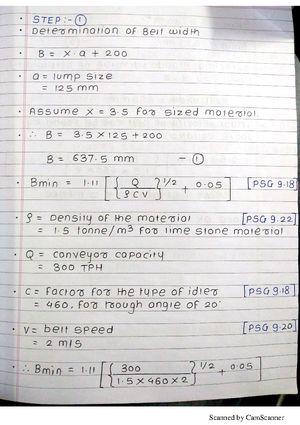 • STEP:- ①
• Determination of Belt width
• B = x·a + 200
• a = lump size
= 125 mm
• Assume x = 3.5 for sized material.
• ∴ B = 3.5 x 125 + 200
B = 637.5 mm — ①
• Bmin = 1.11 [{Q / ρCV}^1/2 + 0.05] [PSG 9.18]
• ρ = Density of the material [PSG 9.22]
= 1.5 tonne/m³ for lime stone material
• Q = conveyor capacity
= 300 TPH
• C = Factor for the type of idler [PSG 9.18]
= 460, for trough angle of 20°
• V = belt speed [PSG 9.20]
= 2 m/s
• ∴ Bmin = 1.11 [{300 / 1.5 x 460 x 2}^1/2 + 0.05]
Scanned by CamScanner